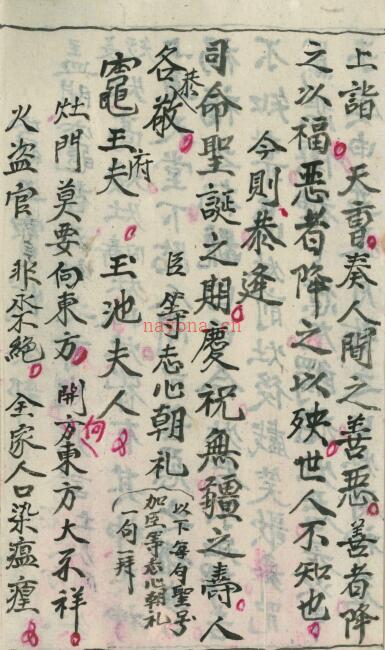 上詣由天曹奏人間之善惡善者降
之以福惡者降之以殃世人不知也
今則恭逢
司命聖誕之期慶祝無疆之壽人
各恭敬 臣等志心朝礼(以下每句聖号
加臣等志心朝礼
一句一拜)
竈王府夫 玉池夫人
灶門莫要向東方 開向東方大不祥
火盜官非永不絕 全家人口染瘟瘟
najona.cn